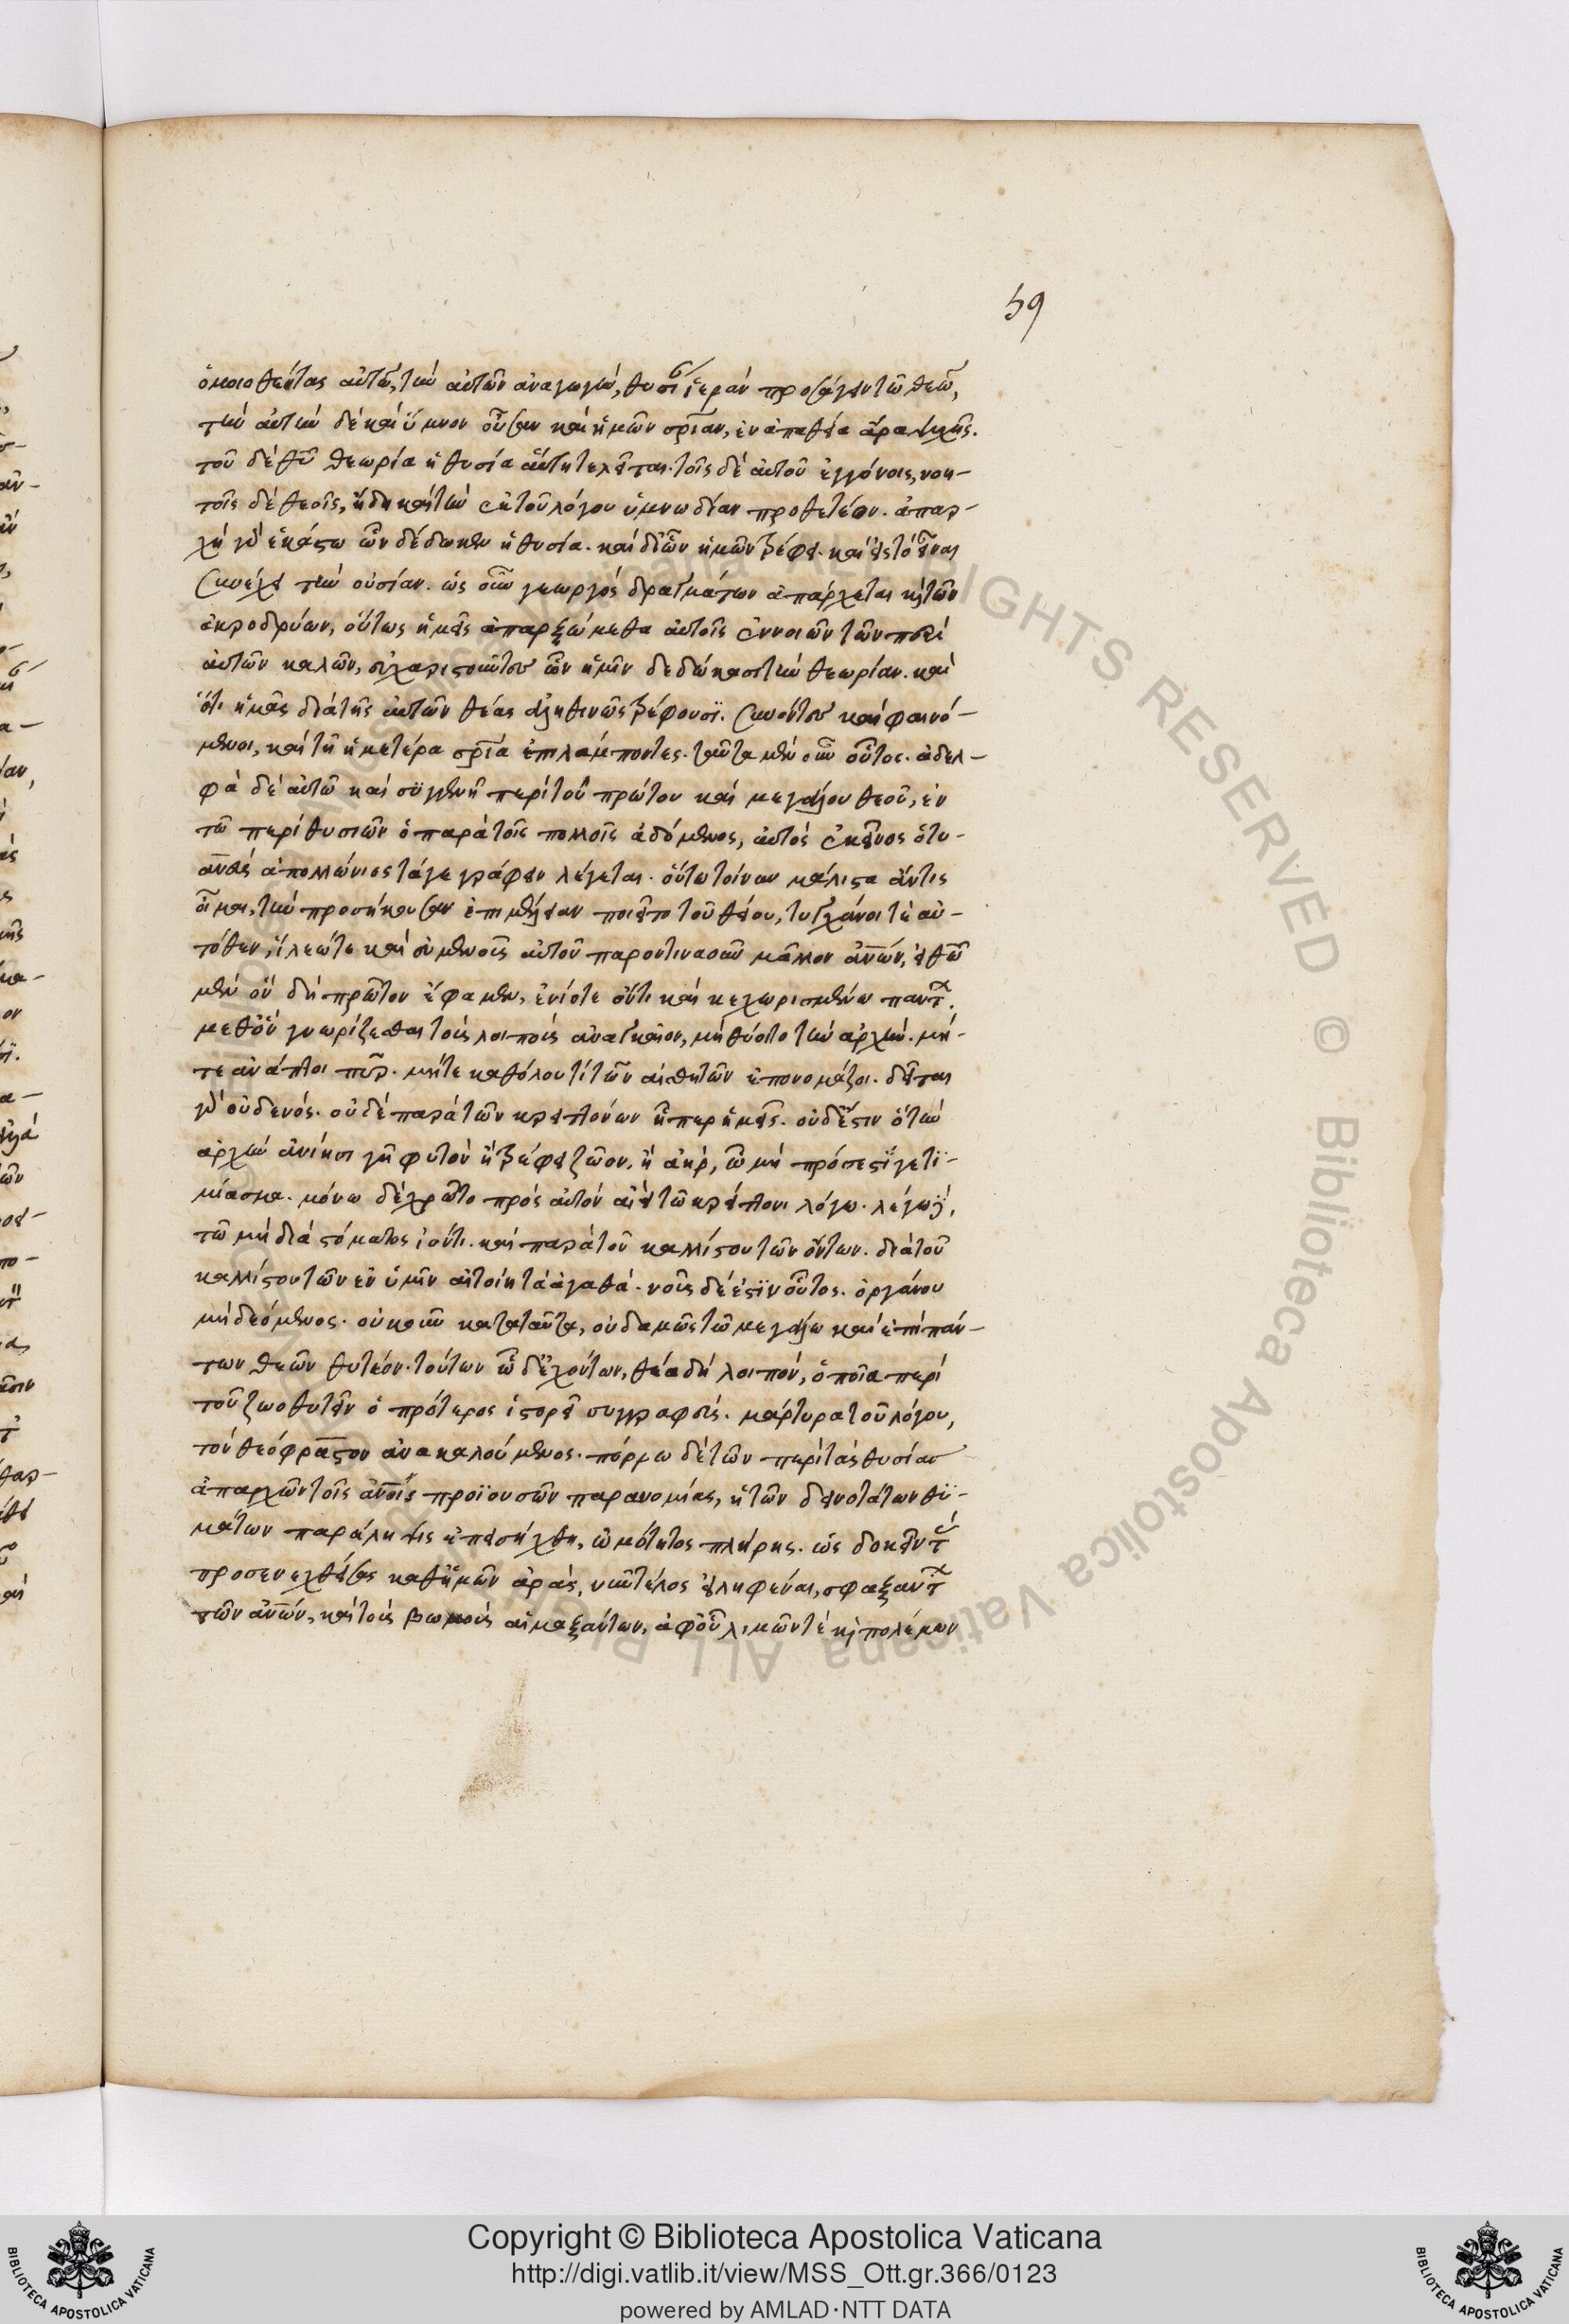 59
ὁμοιωθέντας αὐτῶ, τὴν αὐτῶν ἀναγωγὴν, θυσίαν ἱερὰν προσάγειν τῶ θεῶ,
τὴν αὐτὴν δὲ καὶ ὕμνον οὖσαν καὶ ἡμῶν σρίαν, ἐν ἀπαθεία ἄρα ψυχῆς.
τοῦ δὲ θεοῦ θεωρία ἡ θυσία αὕτη τελεῖται. τοῖς δὲ αὐτοῦ ἐγγόνοις, νοη-
τοῖς δὲ θεοῖς, ἤδη καὶ τὴν ἐκ τοῦ λόγου ὑμνωδίαν προθετέον. ἀπαρ-
χὴ γὰρ ἑκάστω ὧν δέδωκεν ἡ θυσία. καὶ δι' ὧν ἡμῶν τρέφει. καὶ εἰς τὸ εἶναι
συνέχει τὴν οὐσίαν. ὡς οὖν γεωργὸς δραγμάτων ἀπάρχεται καὶ τῶν
ἀκροδρύων, οὕτως ἡμεῖς ἀπαρξώμεθα αὐτοῖς ἐννοιῶν τῶν περὶ
αὐτῶν καλῶν, εὐχαριστοῦντες ὧν ἡμῖν δεδώκασι τὴν θεωρίαν. καὶ
ὅτι ἡμᾶς διὰ τῆς αὐτῶν θέας ἀληθινῶς τρέφουσι. συνόντες καὶ φαινό-
μενοι, καὶ τῆ ἡμετέρα σρία ἐπιλάμποντες. ταῦτα μὲν οὖν οὗτος. ἀδελ-
φὰ δὲ αὐτῶ καὶ συγγενῆ περὶ τοῦ πρώτου καὶ μεγάλου θεοῦ, ἐν
τῶ περὶ θυσιῶν ὁ παρὰ τοῖς πολλοῖς ἀδόμενος, αὐτὸς ἐκεῖνος ὁ τυ-
ανεὺς ἀπολλώνιος τάγε γράφειν λέγεται. οὕτω τοίνυν μάλιστα ἄν τις
οἶμαι, τὴν προσήκουσαν ἐπιμέλειαν ποιεῖτο τοῦ θείου, τυγχάνοι τὲ αὐ-
τόθεν, ἵλεώ τε καὶ εὐμενοῦς αὐτοῦ παρ' ὁντιναοῦν μᾶλλον ἀνῶν, εἰ θεῶ
μὲν ὃν δὴ πρῶτον ἔφαμεν, ἑνί ὄτε ὄντι καὶ κεχωρισμένω πάντ.
μεθ' ὃν γνωρίζεσθαι τοὺς λοιποὺς ἀναγκαῖον, μὴ θύοιτο τὴν ἀρχὴν. μή-
τε ἀνάπτοι πῦρ. μήτε καθόλου τὶ τῶν αἰσθητῶν ἐπονομάζοι. δεῖται
γὰρ οὐδενός. οὐδὲ παρὰ τῶν κρειττόνων ἥπερ ἡμεῖς. οὐδ' ἔστιν ὃ τὴν
ἀρχὴν ἀνίησι γῆ φυτὸν ἢ τρέφει ζῶον, ἢ ἀὴρ, ὧ μὴ πρόσεστί γε τὶ
μίασμα. μόνω δὲ χρῶτο πρὸς αὐτὸν αἰεὶ τῶ κρείττονι λόγω. λέγω δὲ,
τῶ μὴ διὰ στόματος ἰόντι. καὶ παρὰ τοῦ καλλίστου τῶν ὄντων. διὰ τοῦ
καλλίστου τῶν ἐν ὑμῖν αἰτοίη τὰ ἀγαθὰ. νοῦς δέ ἐστιν οὗτος. ὀργάνου
μὴ δεόμενος. οὐκοῦν κατὰ ταῦτα, οὐδαμῶς τῶ μεγάλω καὶ ἐπὶ πάν-
των θεῶν θυτέον. τούτων ὧδ' ἐχόντων, θέα δὴ λοιπὸν, ὁποῖα περὶ
τοῦ ζωοθυτεῖν ὁ πρότερος ἱστορεῖ συγγραφεύς. μάρτυρα τοῦ λόγου,
τὸν θεόφραστον ἀνακαλούμενος. πόρρω δὲ τῶν περὶ τὰς θυσίας
ἀπαρχῶν τοῖς ἀνοῖς προϊουσῶν παρανομίας, ἡ τῶν δεινοτάτων θυ-
μάτων παράληψις ἐπεισήχθη, ὠμότητος πλήρης. ὡς δοκεῖν τ
προσενεχθείσας καθ' ἡμῶν ἀρὰς, νῦν τέλος εἰληφέναι, σφαξάντ
τῶν ἀνῶν, καὶ τοὺς βωμοὺς αἱμαξάντων, ἀφ' οὗ λιμῶν τὲ καὶ πολέμων
Copyright © Biblioteca Apostolica Vaticana
http://digi.vatlib.it/view/MSS_Ott.gr.366/0123
powered by AMLAD·NTT DATA